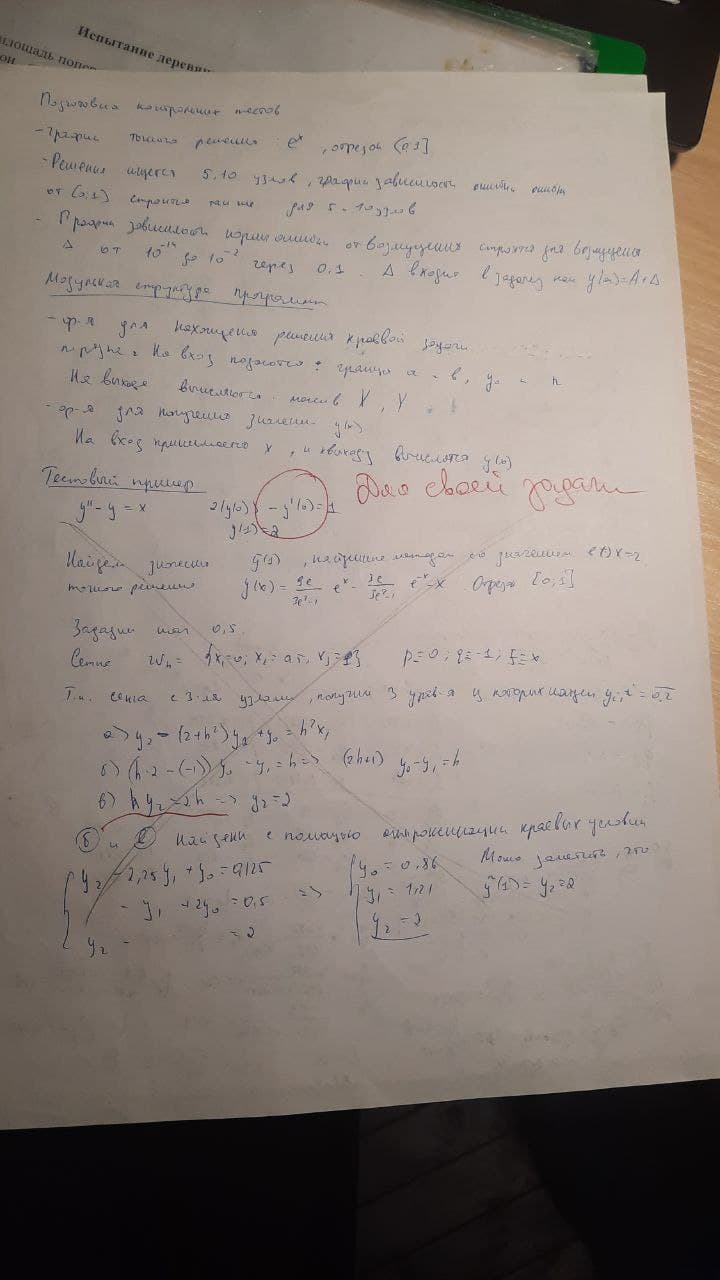 Испытание деревян
площадь попер
Подготовка контрольных тестов
- График точного решения e^x, отрезок [0,1]
- Решения ищется 5,10 узлов, график зависимости ошибки
от [0;1] строится так же для 5 и 10 узлов
- График зависимости нормы ошибки от возмущения строится для возмущения
Δ от 10^-14 до 10^-2 через 0,1. Δ входит в задачу как y(a)=A+Δ
Модульная структура программы
- ф-я для нахождения решения краевой задачи
На вход подаются: границы a, b, y₀ n
На выходе вычисляются массив X, Y
- ф-я для получения значения y(x)
На вход принимается x, и на выходе вычислятся y(x)
Тестовый пример
y'' - y = x 2(y(0)) - y'(0) = 1 Для своей задачи
y(1) = 2
Найдем значение ỹ(1), найденное методом со значением
точного решения y(x) = e^x - e^-x - x Отрезок [0;1]
Зададим шаг 0,5.
Сетка ; p=0; q=-1; f=x
Т.к. сетка с 3-мя узлами, получим 3 урав-я из которых найдем y_i, i=0,2
а) y₂ - (2+h²)y₁ + y₀ = h²x₁
б) (h·2 - (-1)) y₀ - y₁ = h => (2h+1) y₀ - y₁ = h
в) h y₂ = 2h => y₂ = 2
б и в найдены с помощью аппроксимации краевых условий
y₂ - 2,25y₁ + y₀ = 0,125 y₀ = 0,86 Можно заметить, что
- y₁ + 2y₀ = 0,5 => y₁ = 1,21 ỹ(1) = y₂ = 2
y₂ = 2 y₂ = 2